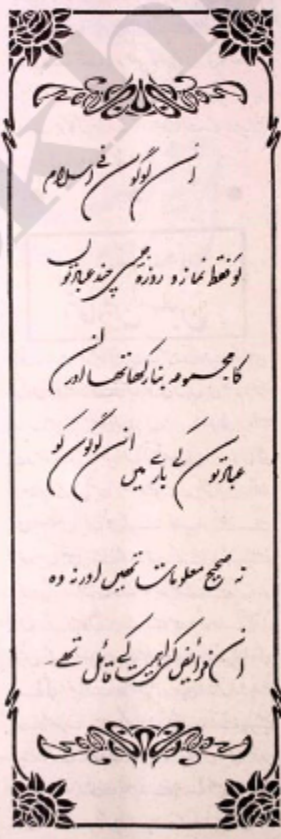 ان لوگوں نے اسلام
کو فقط نماز و روزہ جیسی چند عبادتوں
کا مجموعہ بنا رکھا تھا اور ان
عبادتوں کے بارے میں ان لوگوں کو
نہ صحیح معلومات تھیں اور نہ وہ
ان فرائض کی اہمیت کے قائل تھے۔